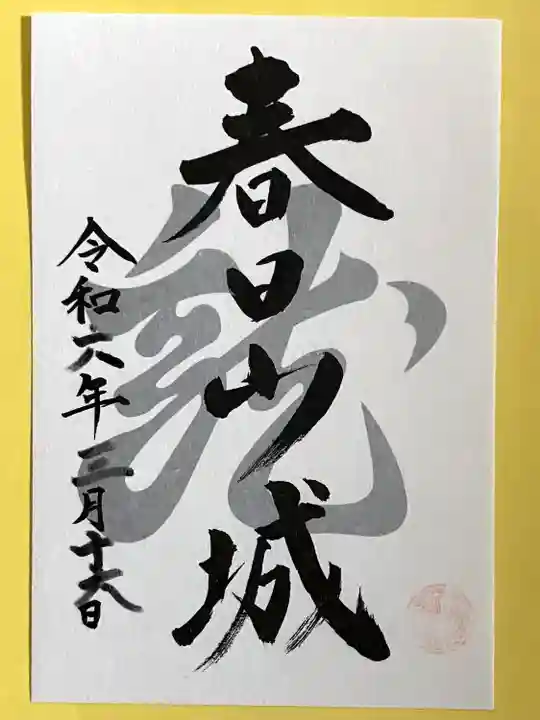 春日山城
龍
令和六年三月十六日